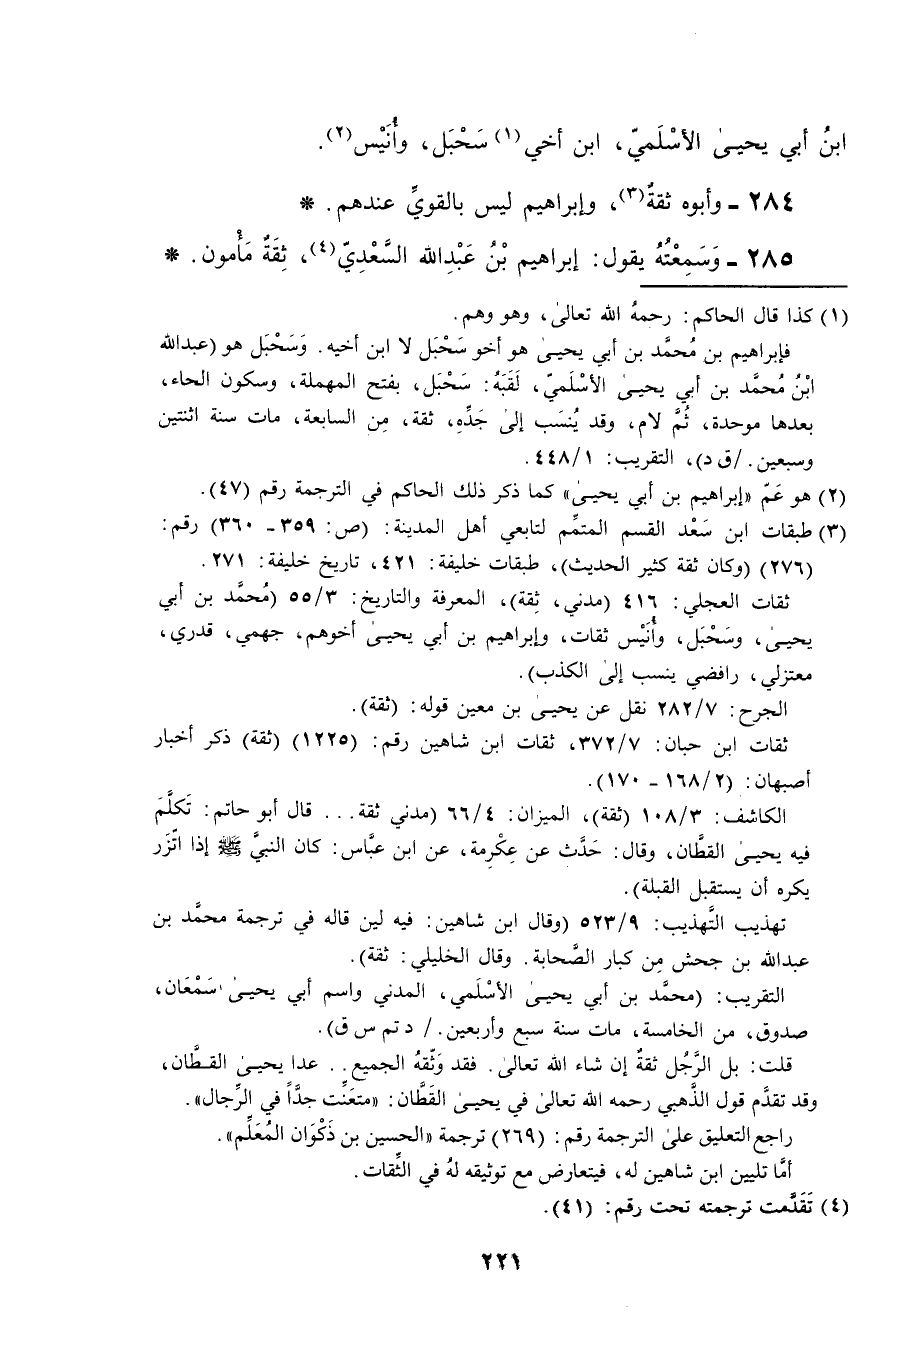 ابنُ أبي يحيىٰ الأسْلَميّ، ابن أخي(١) سَحْبَل، وأُنَيْس(٢).
٢٨٤ ـ وأبوه ثقةٌ(٣)، وإبراهيم ليس بالقويِّ عندهم. *
٢٨٥ ـ وَسَمِعْتُهُ يقول: إبراهيم بْنُ عَبْدِالله السَّعْدِيّ(٤)، ثِقَةٌ مَأْمون. *
(١) كذا قال الحاكم: رحمهُ الله تعالىٰ، وهو وهم.
فإبراهيم بن مُحمَّد بن أبي يحيىٰ هو أخو سَحْبَل لا ابن أخيه. وَسَحْبَل هو (عبدالله
ابْنُ مُحمَّد بن أبي يحيىٰ الأسْلَميّ، لَقَبَهُ: سَحْبَل، بفتح المهملة، وسكون الحاء،
بعدها موحدة، ثُمَّ لام، وقد يُنسَب إلىٰ جَدِّهِ، ثقة، مِن السابعة، مات سنة اثنتين
وسبعين. /ق د)، التقريب: ٤٤٨/١.
(٢) هو عَمّ «إبراهيم بن أبي يحيىٰ» كما ذكر ذلك الحاكم في الترجمة رقم (٤٧).
(٣) طبقات ابن سَعْد القسم المتمِّم لتابعي أهل المدينة: (ص: ٣٥٩ - ٣٦٠) رقم:
(٢٧٦) (وكان ثقة كثير الحديث)، طبقات خليفة: ٤٢١، تاريخ خليفة: ٢٧١.
ثقات العجلي: ٤١٦ (مدني، ثِقة)، المعرفة والتاريخ: ٥٥/٣ (مُحمَّد بن أبي
يحيىٰ، وسَحْبَل، وأُنَيْس ثقات، وإبراهيم بن أبي يحيىٰ أخوهم، جهمي، قدري،
معتزلي، رافضي ينسب إلىٰ الكذب).
الجرح: ٢٨٢/٧ نقل عن يحيىٰ بن معين قوله: (ثقة).
ثقات ابن حبان: ٣٧٢/٧، ثقات ابن شاهين رقم: (١٢٢٥) (ثقة) ذكر أخبار
أصبهان: (١٦٨/٢ - ١٧٠).
الكاشف: ١٠٨/٣ (ثقة)، الميزان: ٦٦/٤ (مدني ثقة... قال أبو حاتم: تَكلَّمَ
فيه يحيىٰ القطَّان، وقال: حَدَّث عن عِكْرِمة، عن ابن عبَّاس: كان النبيَّ ﷺ إذا اتّزَر
يكره أن يستقبل القبلة).
تهذيب التَّهذيب: ٥٢٣/٩ (وقال ابن شاهين: فيه لين قاله في ترجمة محمَّد بن
عبدالله بن جحش مِن كبار الصَّحابة. وقال الخليلي: ثقة).
التقريب: (محمَّد بن أبي يحيىٰ الأسْلَمي، المدني واسم أبي يحيىٰ سَمْعَان،
صدوق، من الخامسة، مات سنة سبع وأربعين. / د تم س ق).
قلت: بل الرَّجُل ثقةٌ إن شاء الله تعالىٰ. فقد وَثّقهُ الجميع.. عدا يحيىٰ القطَّان،
وقد تقدَّم قول الذَّهبي رحمه الله تعالىٰ في يحيىٰ القَطَّان: «متعَنِّت جدَّاً في الرِّجال».
راجع التعليق علىٰ الترجمة رقم: (٢٦٩) ترجمة «الحسين بن ذَكْوَان المُعَلِّم».
أمَّا تليين ابن شاهين له، فيتعارض مع توثيقه لهُ في الثِّقات.
(٤) تَقَدَّمت ترجمته تحت رقم: (٤١).
٢٢١